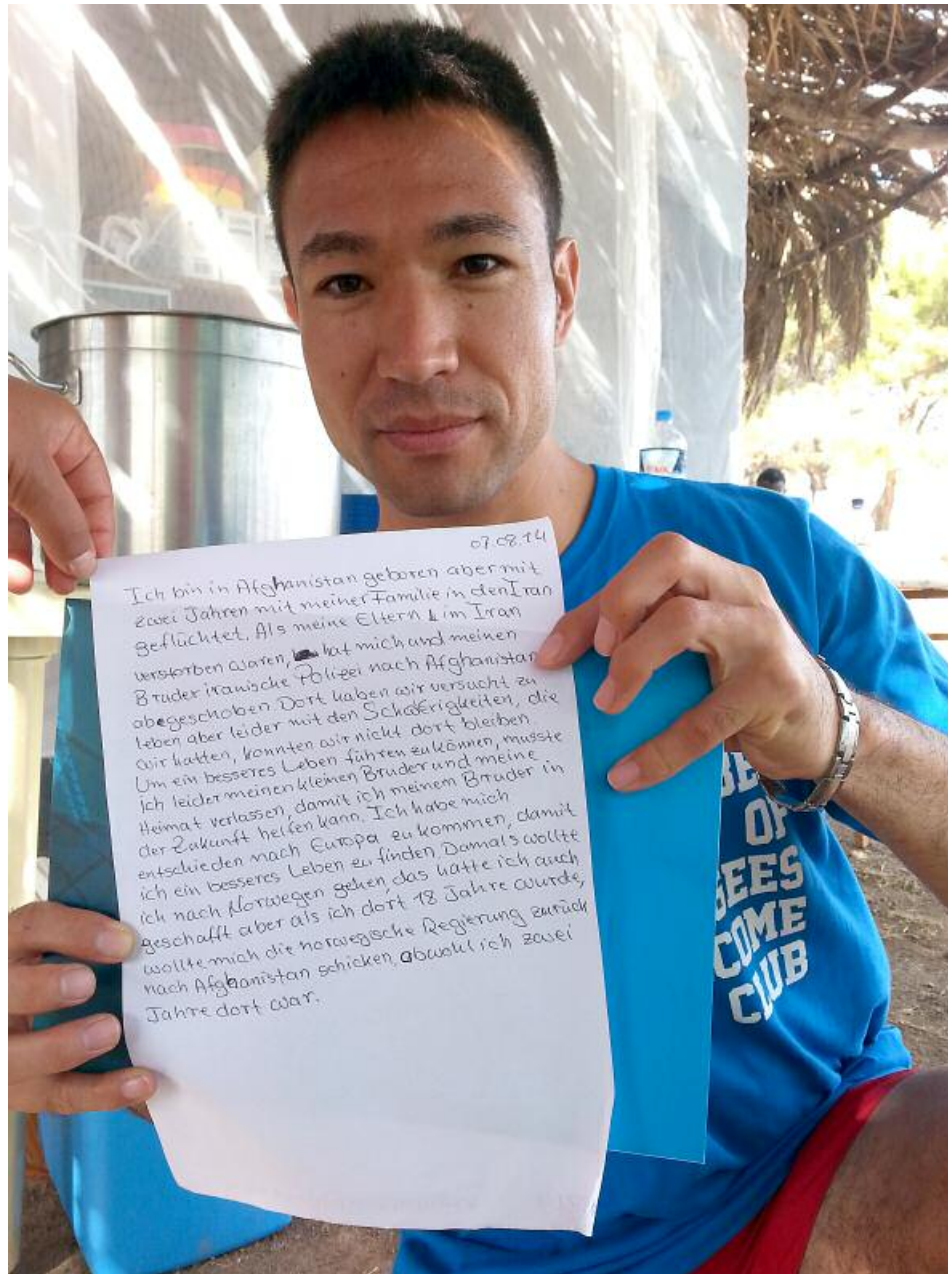 07.08.14
Ich bin in Afghanistan geboren aber mit
zwei Jahren mit meiner Familie in den Iran
geflüchtet. Als meine Eltern im Iran
verstorben waren, hat mich und meinen
Bruder iranische Polizei nach Afghanistan
abgeschoben. Dort haben wir versucht zu
leben aber leider mit den Schwierigkeiten, die
wir hatten, konnten wir nicht dort bleiben.
Um ein besseres Leben führen zu können, musste
ich leider meinen kleinen Bruder und meine
Heimat verlassen, damit ich meinem Bruder in
der Zukunft helfen kann. Ich habe mich
entschieden nach Europa zu kommen, damit
ich ein besseres Leben zu finden. Damals wollte
ich nach Norwegen gehen, das hatte ich auch
geschafft aber als ich dort 18 Jahre wurde,
wollte mich die norwegische Regierung zurück
nach Afghanistan schicken, obwohl ich zwei
Jahre dort war.
OF
GEES
COME
CLUB